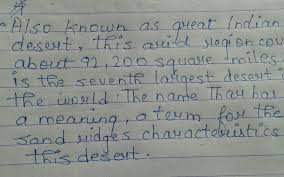 Also known as great Indian
desert, this arid region cov
about 92,200 square miles
is the seventh largest desert
the world. The name Thar has
a meaning, a term for the
sand ridges characteristics
this desert.